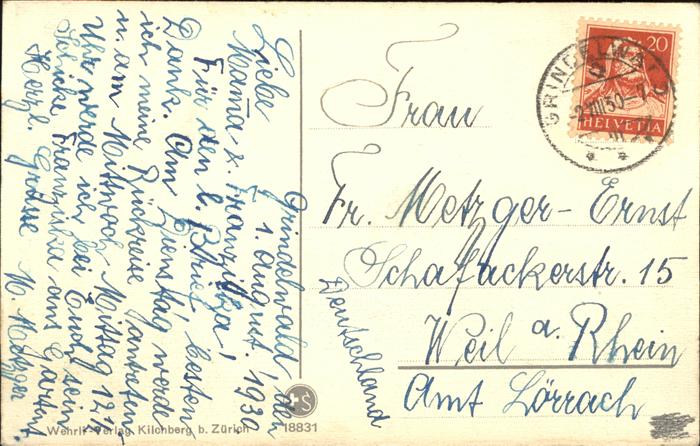 Grindelwald, den
1. August. 1930
Liebe
Mama & Franziska!
Für den l. Brief besten
Dank. Am Dienstag werde
ich meine Rückreise antreten
u. am Mittwoch Mittag 12½
Uhr werde ich bei Euch sein
Schicke Franziska ans Bahnh.
Herzl. Grüsse M Metzger
Frau
Fr. Metzger-Ernst
Schafackerstr. 15
Weil a. Rhein
Amt Lörrach
Deutschland
20
HELVETIA
GRINDELWALD
-2.VIII.30-7
Wehrli-Verlag Kilchberg b. Zürich 18831